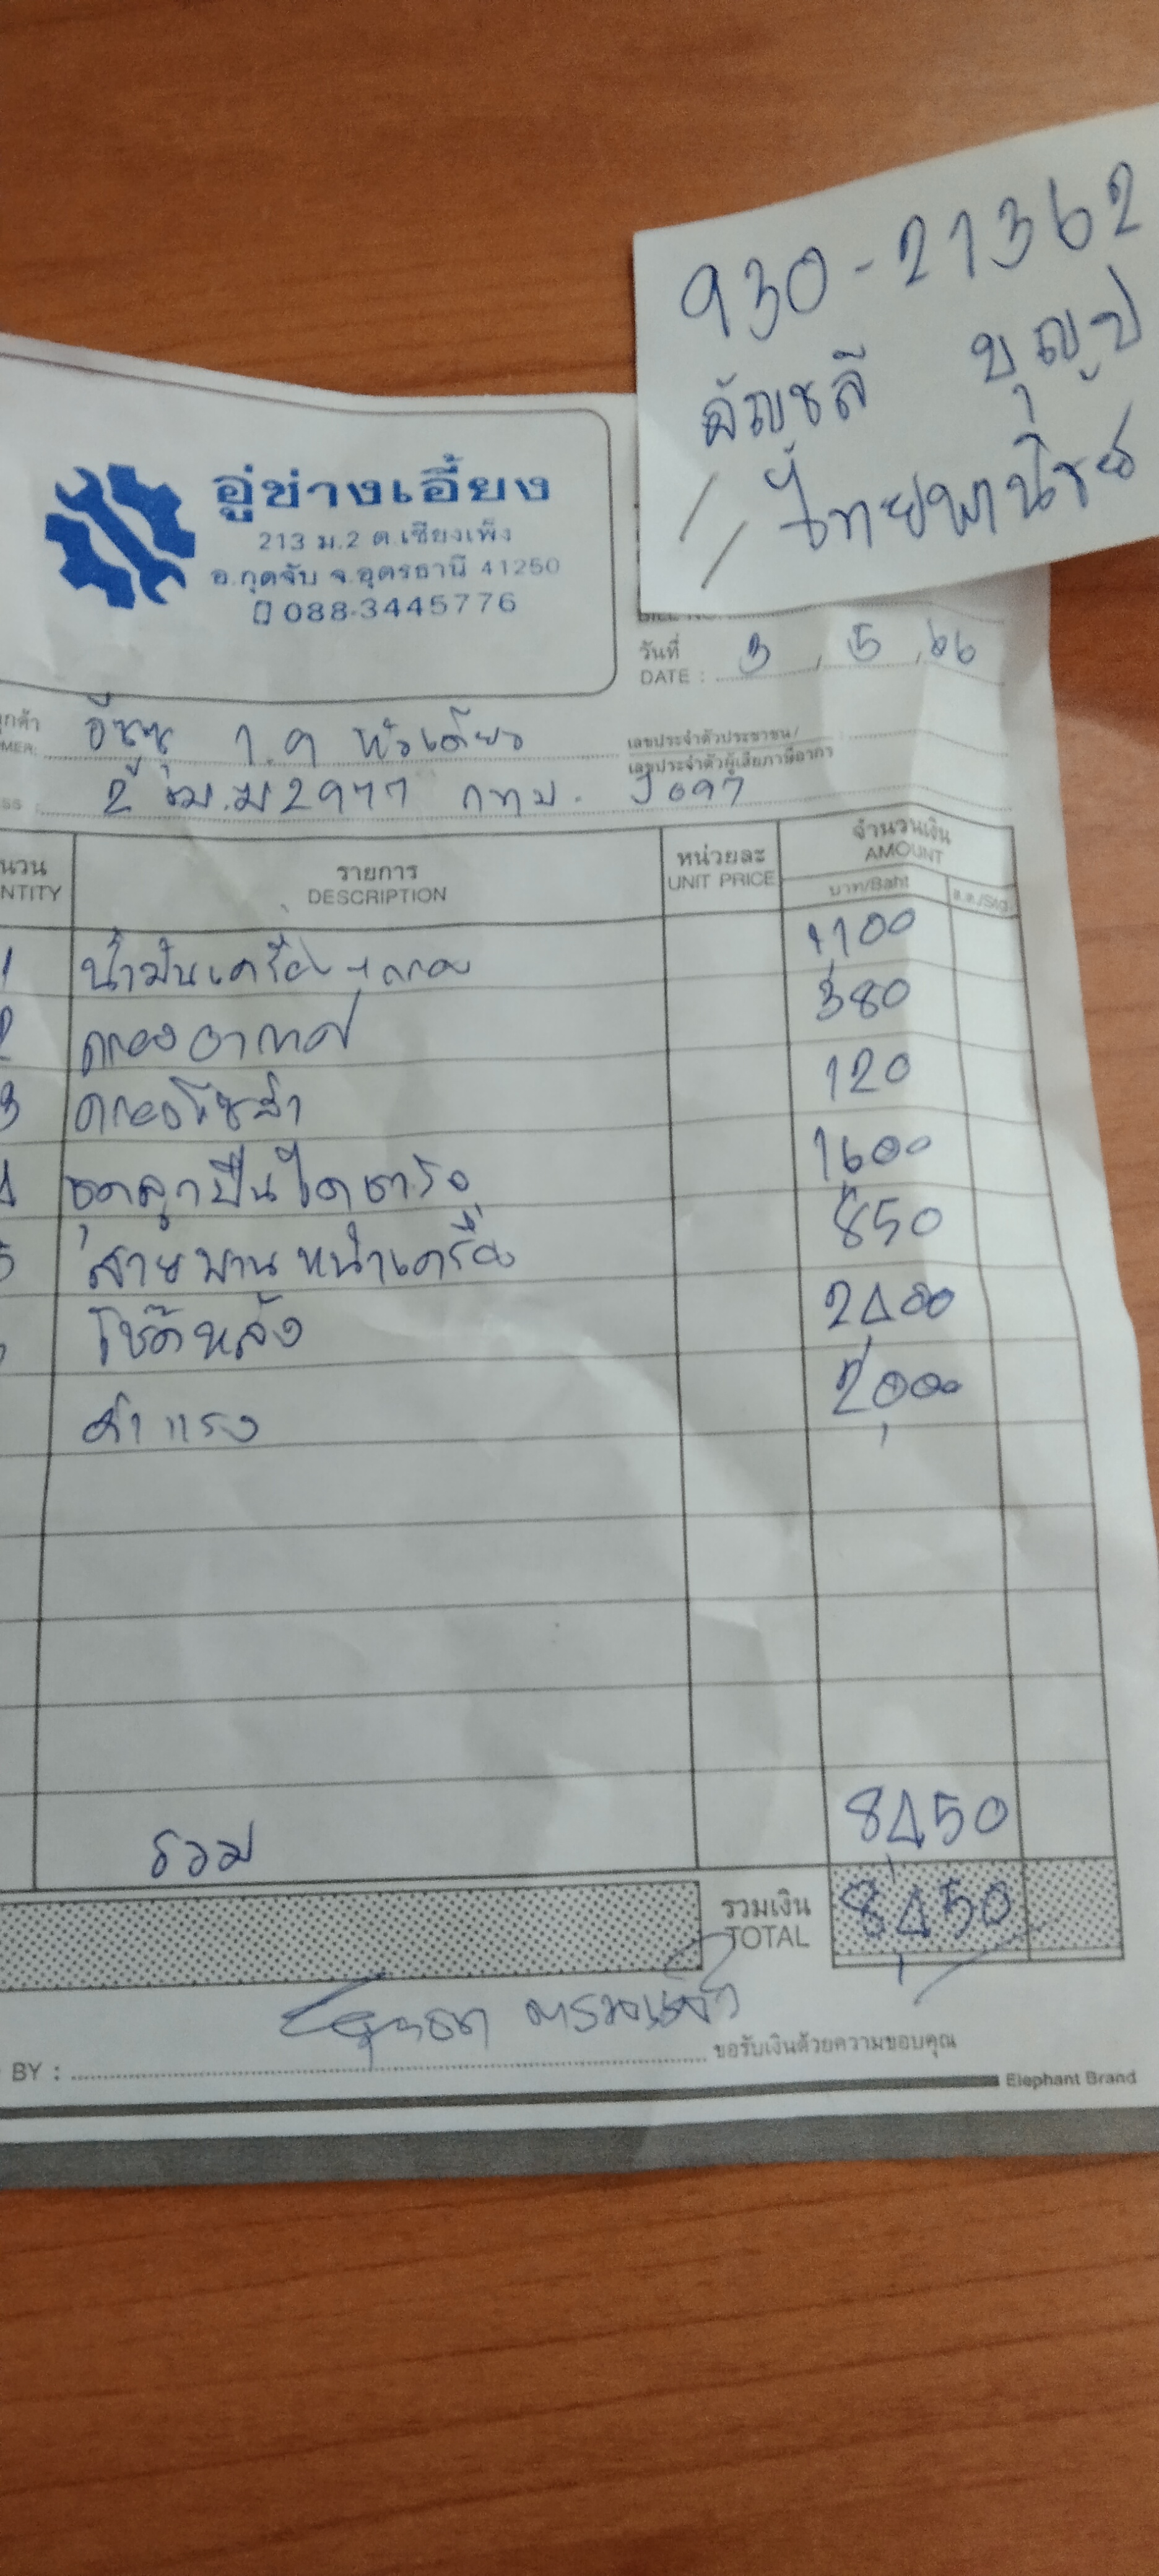 930-21362
อัญชลี บุญ
ไทยพานิชย์
อู่ช่างเอี้ยง
213 ม.2 ต.เชียงเพ็ง
อ.กุดจับ จ.อุดรธานี 41250
088-3445776
วันที่
DATE : 3 , 5 , 66
อีซูซุ 1.9 หัวเดียว
เลขประจำตัวประชาชน/
เลขประจำตัวผู้เสียภาษีอากร
2977 กทม.
รายการ
DESCRIPTION
หน่วยละ
UNIT PRICE
จำนวนเงิน
AMOUNT
บาท/Baht
ส.ต./Stg.
1 น้ำมันเครื่อง + กรอง 1100
2 กรองอากาศ 380
3 กรองโซล่า 120
4 ชุดลูกปืนไดชาร์จ 1600
5 สายพานหน้าเครื่อง 850
โช๊คหลัง 2400
ค่าแรง 2000
รวม 8450
รวมเงิน
TOTAL 8450
ตรวจแล้ว
BY : ขอรับเงินด้วยความขอบคุณ
Elephant Brand